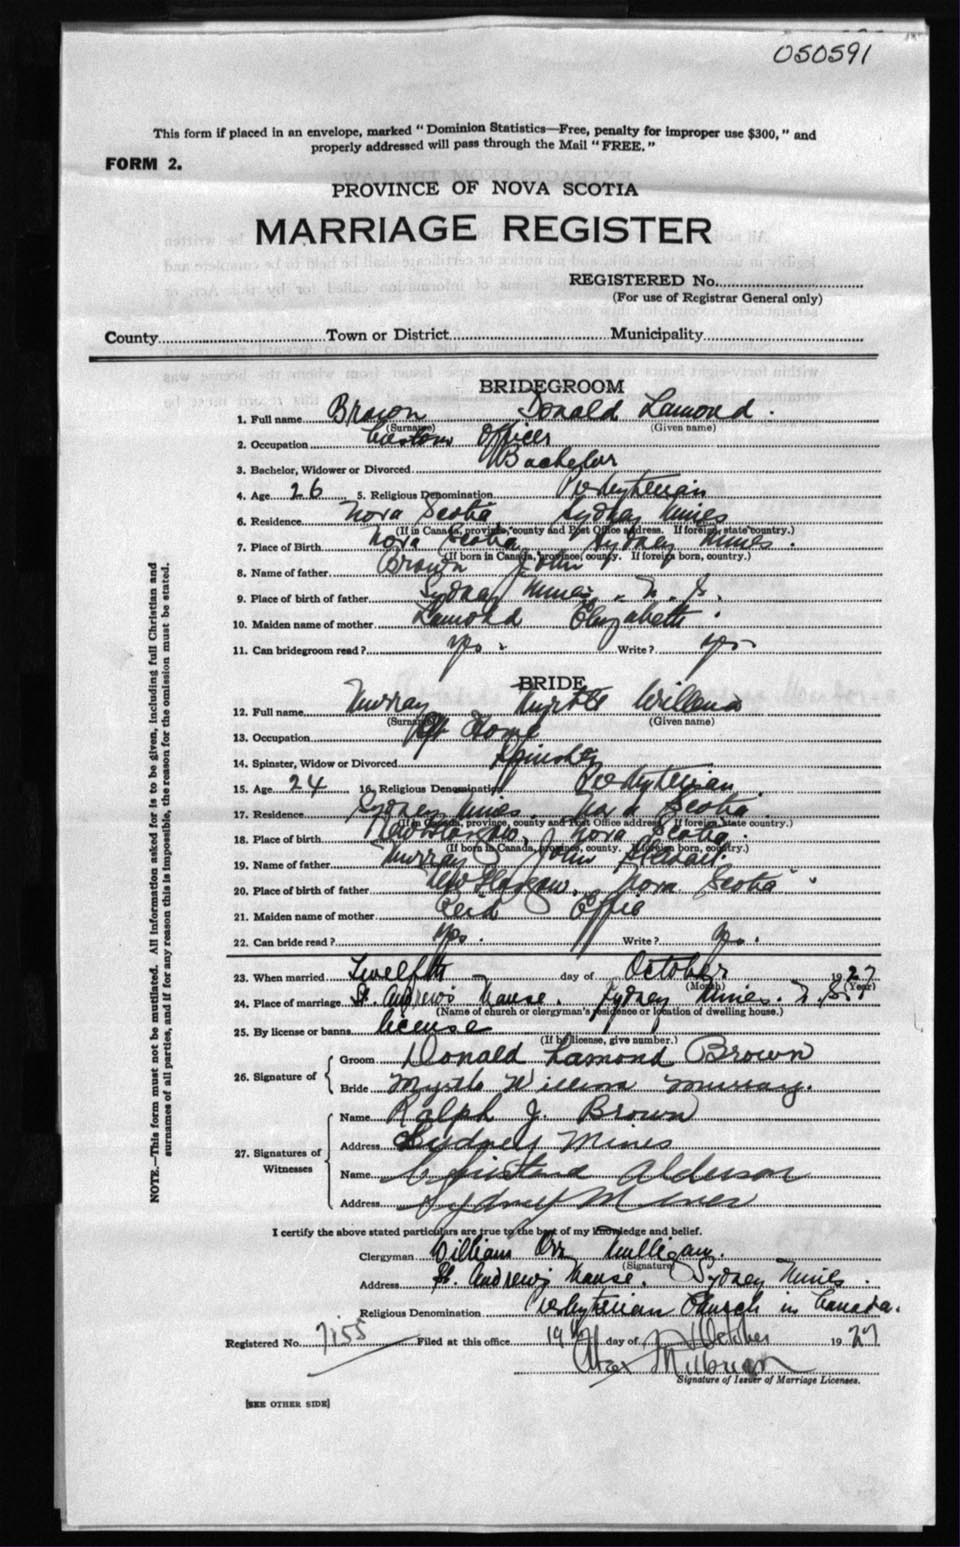 050591
This form if placed in an envelope, marked "Dominion Statistics—Free, penalty for improper use $300," and
properly addressed will pass through the Mail "FREE."
FORM 2.
PROVINCE OF NOVA SCOTIA
MARRIAGE REGISTER
REGISTERED No.
(For use of Registrar General only)
County Town or District Municipality
BRIDEGROOM
1. Full name Brown Donald Lamond.
(Surname) (Given name)
2. Occupation Customs Officer
3. Bachelor, Widower or Divorced Bachelor
4. Age 26 5. Religious Denomination Presbyterian
6. Residence Nova Scotia Sydney Mines
(If in Canada, province, county and Post Office address. If foreign, state country.)
7. Place of Birth Nova Scotia Sydney Mines.
(If born in Canada, province, county. If foreign born, country.)
8. Name of father Brown John
9. Place of birth of father Sydney Mines, N. S.
10. Maiden name of mother Lamond Elizabeth.
11. Can bridegroom read? yes. Write? yes
BRIDE
12. Full name Murray Myrtle Willena
(Surname) (Given name)
13. Occupation At Home
14. Spinster, Widow or Divorced Spinster
15. Age 24 16. Religious Denomination Presbyterian.
17. Residence Sydney Mines. Nova Scotia.
(If in Canada, province, county and Post Office address. If foreign, state country.)
18. Place of birth New Glasgow, Nova Scotia.
(If born in Canada, province, county. If foreign born, country.)
19. Name of father Murray John
20. Place of birth of father New Glasgow, Nova Scotia.
21. Maiden name of mother Reid Effie
22. Can bride read? yes. Write? yes.
23. When married Twelfth day of October 1927
(Month) (Year)
24. Place of marriage St. Andrew's Manse. Sydney Mines. N.S.
(Name of church or clergyman's residence or location of dwelling house.)
25. By license or banns license
(If by license, give number.)
26. Signature of { Groom Donald Lamond Brown
Bride Myrtle Willena Murray.
27. Signatures of Witnesses { Name Ralph J. Brown
Address Sydney Mines
Name Christena Alderson
Address Sydney Mines
I certify the above stated particulars are true to the best of my knowledge and belief.
Clergyman William Orr Mulligan.
(Signature)
Address St. Andrew's Manse. Sydney Mines.
Religious Denomination Presbyterian Church in Canada.
Registered No. 7155 Filed at this office 19th day of October 1927
Signature of Issuer of Marriage Licenses.
[SEE OTHER SIDE]
NOTE.—This form must not be mutilated. All information asked for is to be given, including full Christian and
surnames of all parties, and if for any reason this is impossible, the reason for the omission must be stated.